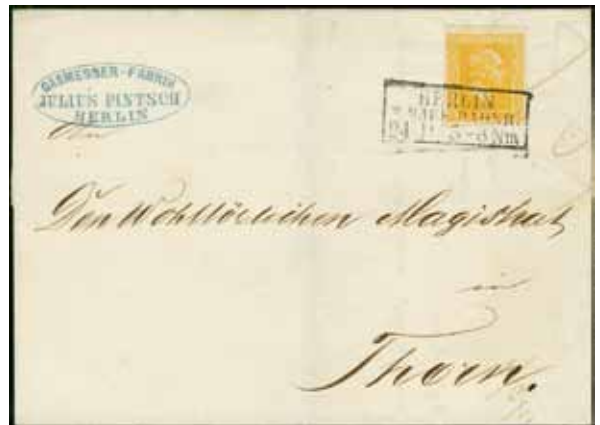 GASMESSER-FABRIK
JULIUS PINTSCH
BERLIN
BERLIN
An
Den Wohllöblichen Magistrat
in
Thorn.